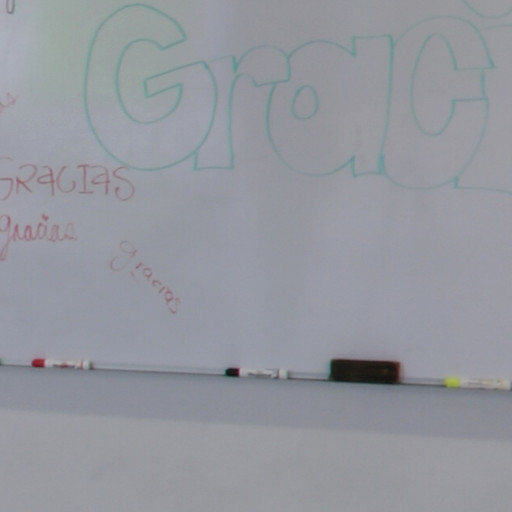 Graci
GRACIAS
gracias
gracias